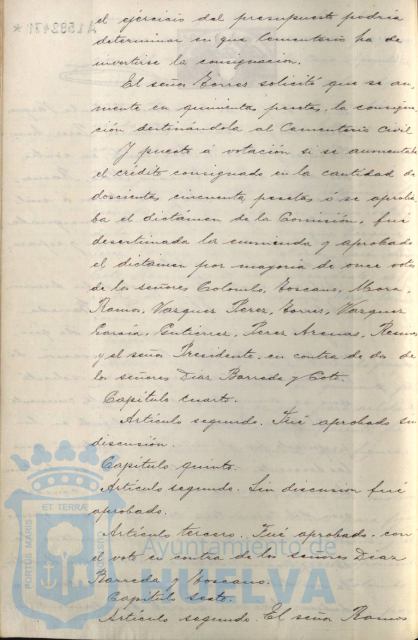 A1592471 *
el ejercicio del presupuesto podria
determinar en que Cementerio ha de
invertirse la consignacion.
El señor Torres solicitó que se au,
mente en quinientas pesetas, la consigna,
ción destinándola al Cementerio Civil.
Y puesto á votación si se aumentaba
el crédito consignado en la cantidad de
doscientas cincuenta pesetas ó se aproba,
ba el dictámen de la Comisión, fué
desestimada la enmienda y aprobado
el dictámen por mayoria de once votos
de los señores Colombo, Toscano, Mora,
Ramos, Vazquez Perez, Torres, Vazquez
Garcia, Gutiérrez, Perez Arenas,
y el señor Presidente, en contra de dos de
los señores Diaz Barreda y Coto.
Capítulo cuarto.
Artículo segundo. Fué aprobado sin
discusión.
Capítulo quinto.
Artículo segundo. Sin discusion fué
aprobado.
Artículo tercero. Fué aprobado con
el voto en contra de los señores Diaz
Barreda y Toscano.
Capítulo sexto.
Artículo segundo. El señor Ramos
PORTUS MARIS
ET TERRÆ
Ayuntamiento de
HUELVA